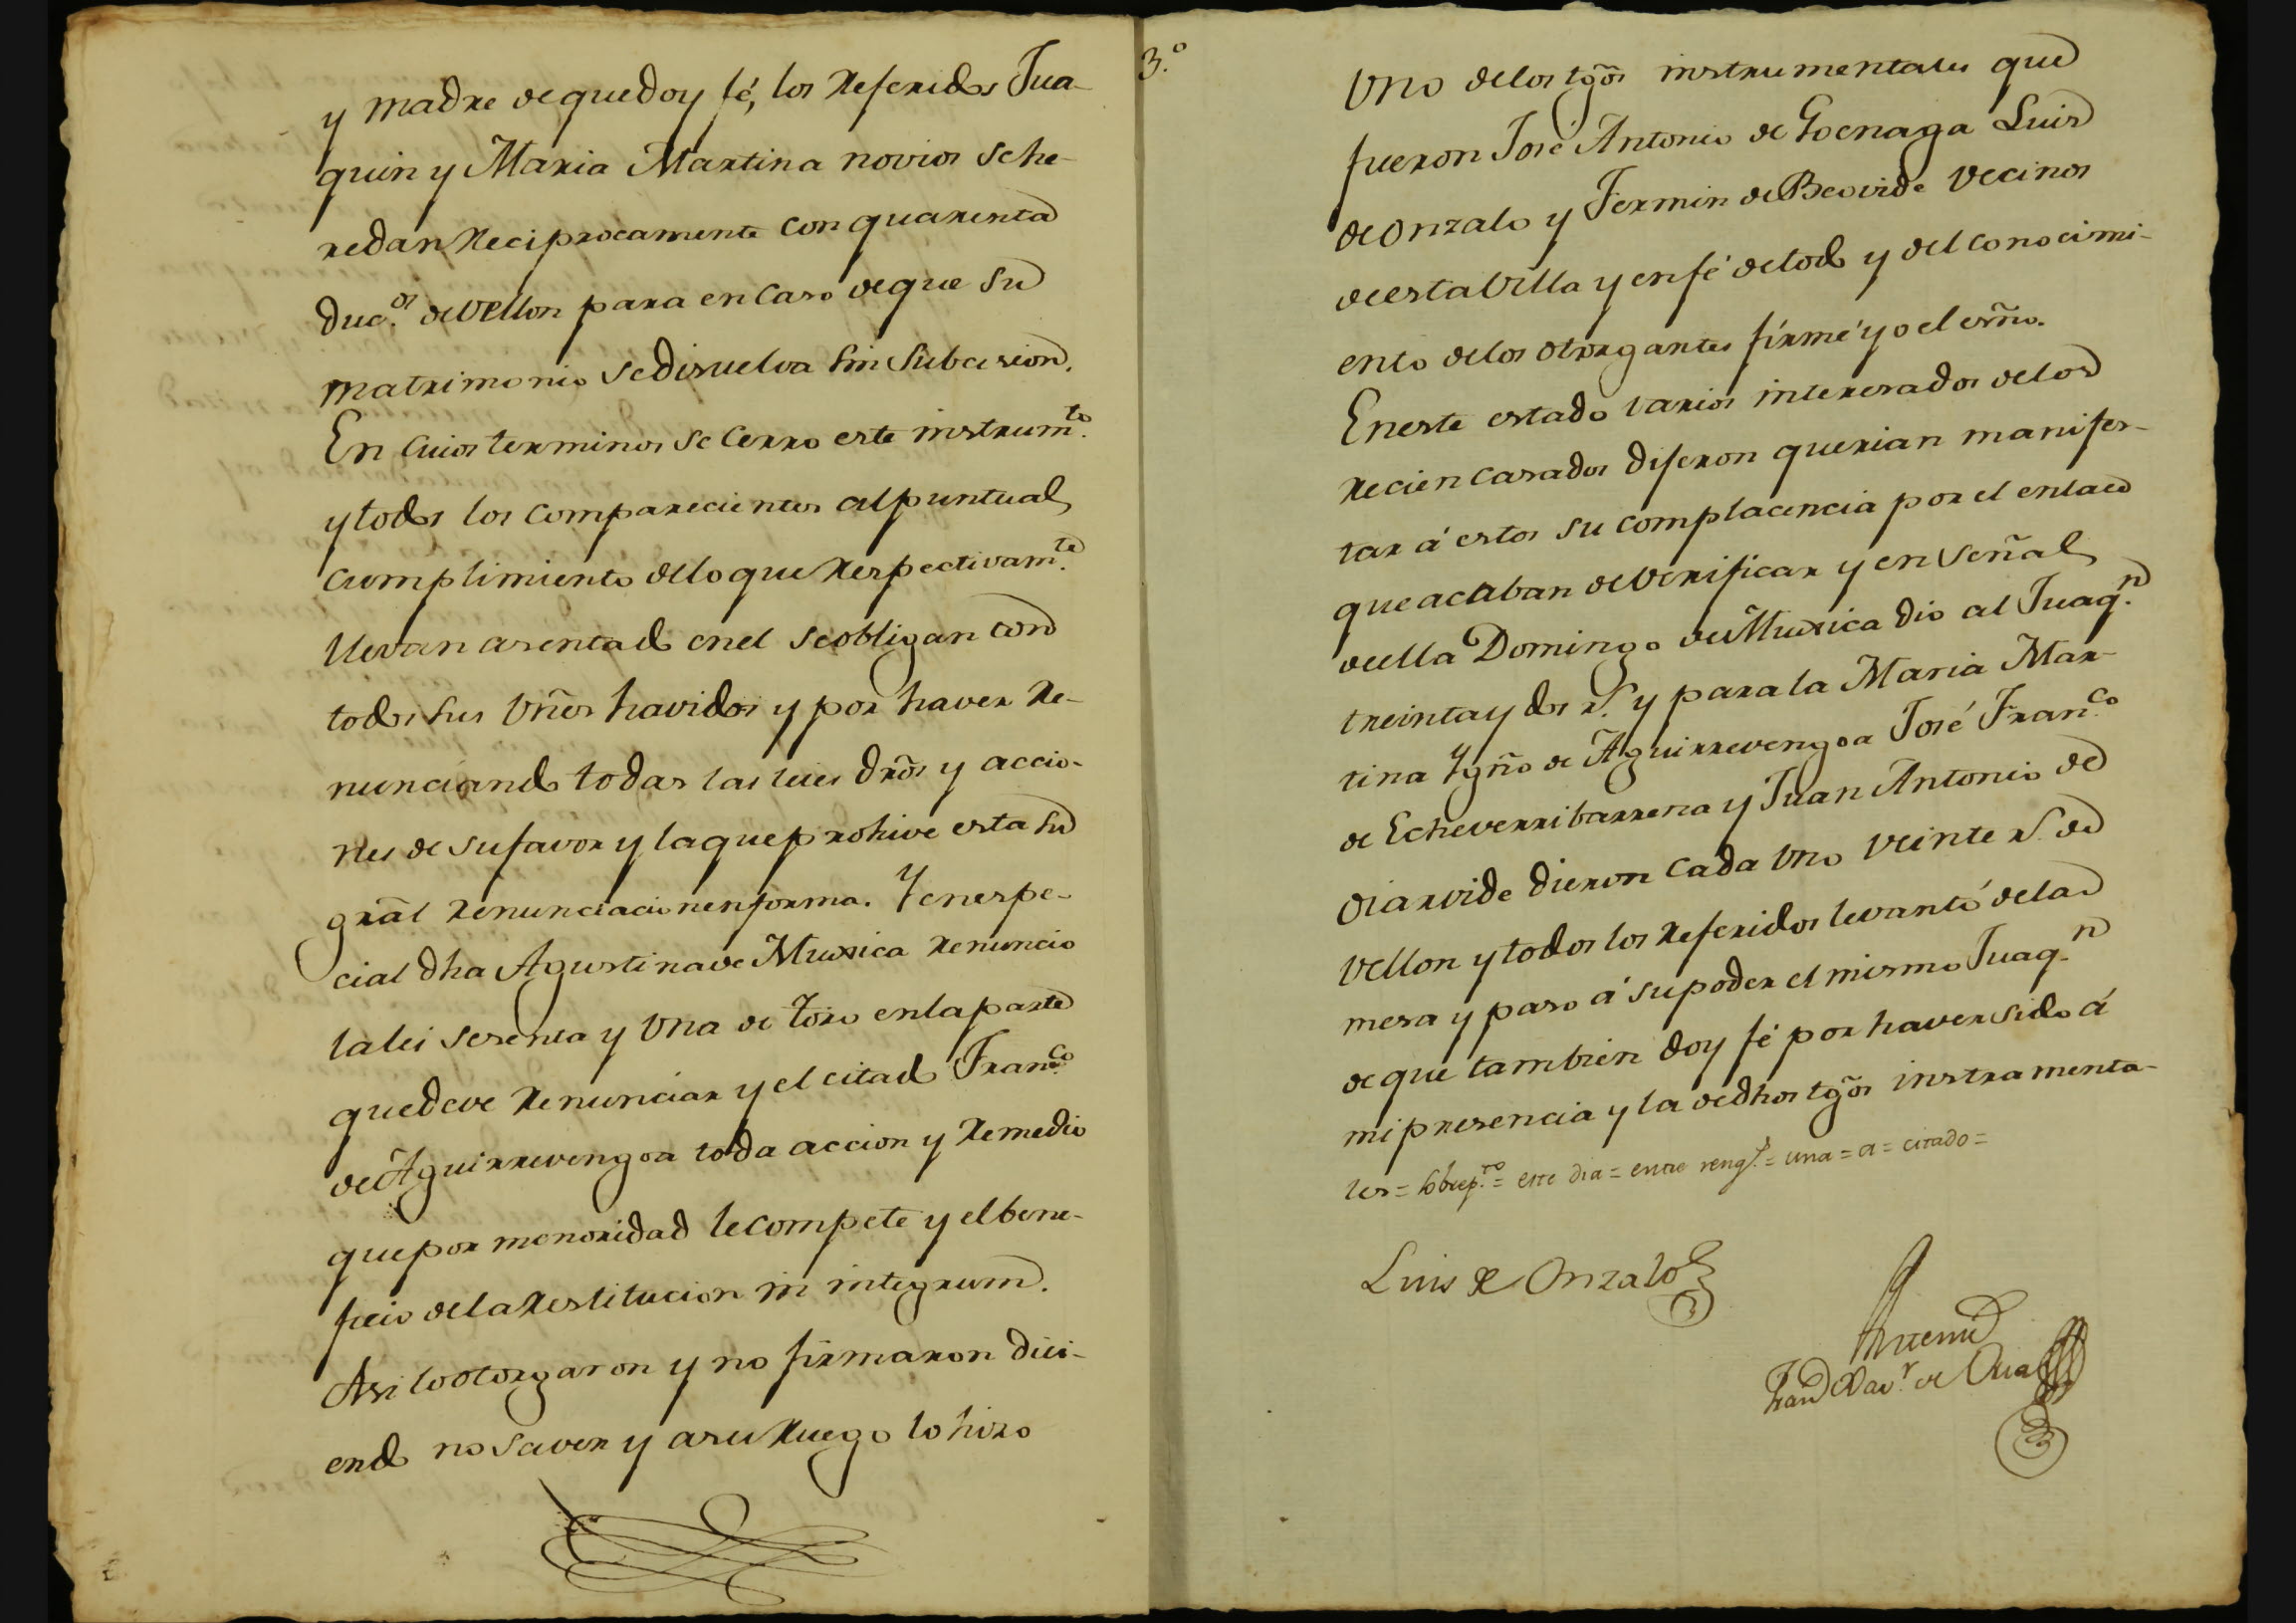 y madre de que doy fé, los referidos Jua-
quin y Maria Martina novios se he-
redan reciprocamente con quarenta
duc.os de vellon para en caso de que su
matrimonio se disuelva sin subcesion.
En cuios terminos se cerro este instrum.to
y todos los comparecientes al puntual
cumplimiento de lo que respectivam.te
llevan asentado en el se obligan con
todos sus vñes havidos y por haver re-
nunciando todas las leies drõs y accio-
nes de su favor y la que prohive esta su
grãl renunciacion en forma. Y en espe-
cial dha Agustina de Muxica renuncio
la lei sesenta y una de toro en la parte
que deve renunciar y el citado Fran.co
de Aguirrevengoa toda accion y remedio
que por menoridad le compete y el bene-
ficio de la restitucion in integrum.
Asi lo otorgaron y no firmaron dici-
endo no saver y a su ruego lo hizo
3.º
uno de los tgõs instrumentales que
fueron José Antonio de Goenaga Luis
de Onzalo y Fermin de Beovide vecinos
de esta Villa y en fé de todo y del conocimi-
ento de los otorgantes firmé yo el esño.
En este estado varios interesados de los
recien casados dijeron querian manifes-
tar á estos su complacencia por el enlace
que acaban de verificar y en señal
de ella Domingo de Muxica dio al Juaq.n
treinta y dos r.s y para la Maria Mar-
tina Ygño de Aguirrevengoa José Fran.co
de Echeverribarrena y Juan Antonio de
Oiarvide dieron cada uno veinte r.s de
vellon y todos los referidos levantó de la
mesa y paso á su poder el mismo Juaq.n
de que tambien doy fé por haver sido á
mi presencia y la de dhos tgõs instrumenta-
les = sobrep.to = este dia = entre reng.s = una = a = citado =
Luis de Onzalo
Antemi
Fran Xav.r de Oria